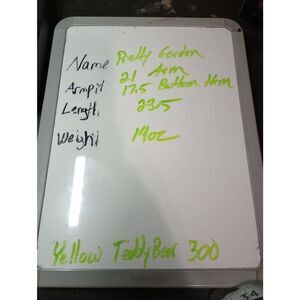 Name Pretty Garden
Armpit 21 Arm
17.5 Bottom Hem
Length 23.5
Weight 14oz
Yellow Teddy Bear 300